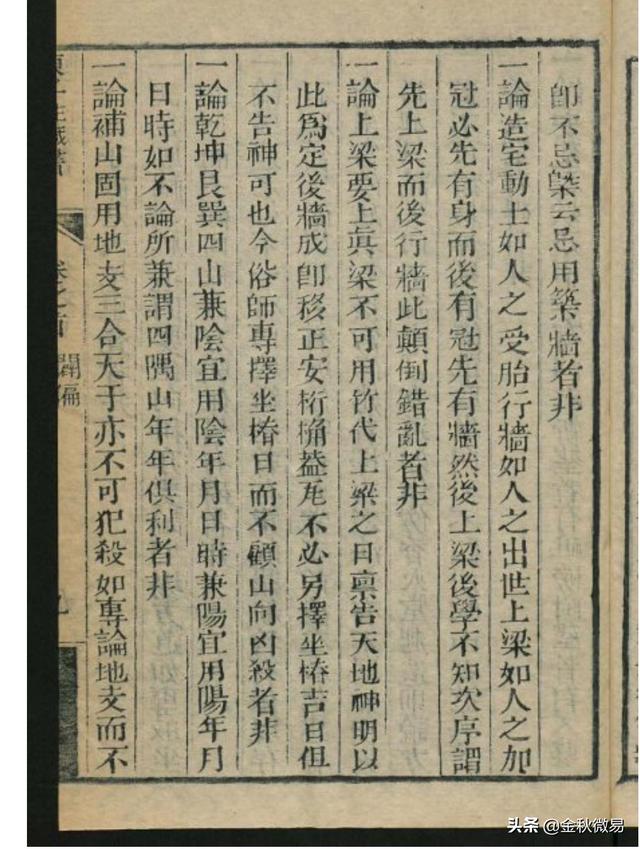 即不忌槩云忌用築牆者非
一論造宅動土如人之受胎行牆如人之出世上梁如人之加
冠必先有身而後有冠先有牆然後上梁後學不知次序謂
先上梁而後行牆此顛倒錯亂者非
一論上梁要上眞梁不可用竹代上梁之日禀告天地神明以
此爲定後牆成卽移正安桁桷葢瓦不必另擇坐椿吉日但
不告神可也今俗師專擇坐椿日而不顧山向凶殺者非
一論乾坤艮巽四山兼陰宜用陰年月日時兼陽宜用陽年月
日時如不論所兼謂四隅山年年俱利者非
一論補山固用地支三合天干亦不可犯殺如專論地支而不
卷之首
闢謬
九
头条 @金秋微易